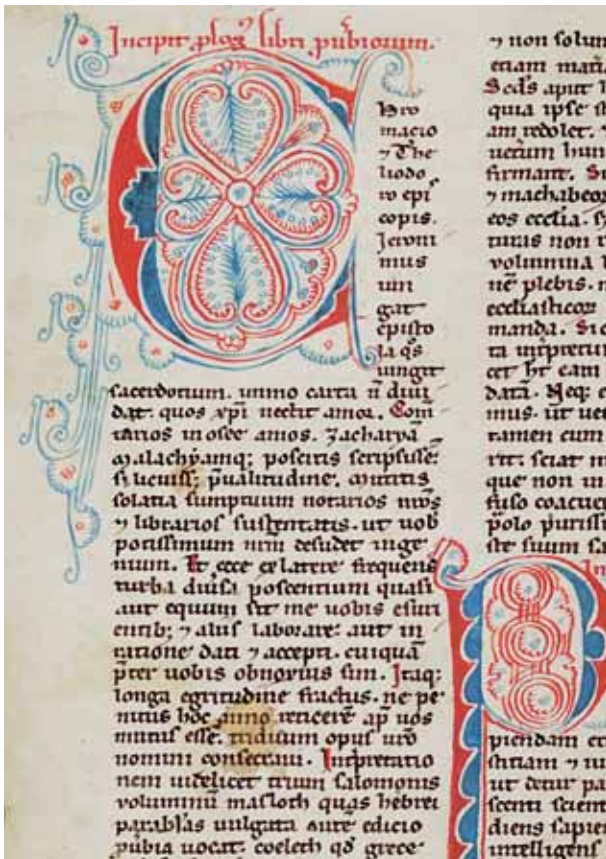 Incipit plog libri pubiorum.
hro
macio
⁊ The
liodo
ro epi
copis.
Jeroni
mus
iun
gat
episto
la qs
iungit
sacerdotium. immo carta ñ diui
dat. quos xpi nectit amor. Com̃
tarios in osee amos. Zacharyã
Malachyamq; poscitis scripsisse:
si licuiss; p̃ualitudine. mittitis
solatia sumptuum notarios nr̃os
⁊ librarios sustentatis. ut uob
potissimum nr̃m desudet inge
nium. Et ecce ex latere frequens
turba diusa poscentium quasi
aut equum sit me uobis esuri
entib; ⁊ aliis laborare: aut in
ratione dati ⁊ accepti. cuiquã
p̃ter uobis obnoxius sim. Itaq:
longa egritudine fractus. ne pe
nitus hoc anno reticerẽ ap̃ uos
mutus essẽ. triduum opus nr̃o
nomini consecraui. Inpretatio
nem uidelicet trium salomonis
voluminũ masloth quas hebrei
parablas uulgata autẽ edicio
pubia uocat. coeleth qd̃ grece
⁊ non solum
etiam
Seds aput
quia ipse
am redolet.
uerum
firmant.
⁊ machabeos
eos ecclia.
turas non
volumina
nẽ plebis.
ecclasticor
manda.
ta inpretum
cet ht eam
datã. Neq;
mus. ut
tamen cum
rit. sciat
que non in
fuso
polo puriss
ste suum
piendam
stitiam ⁊
ut detur pa
scenti scient
diens sapien
intelligens